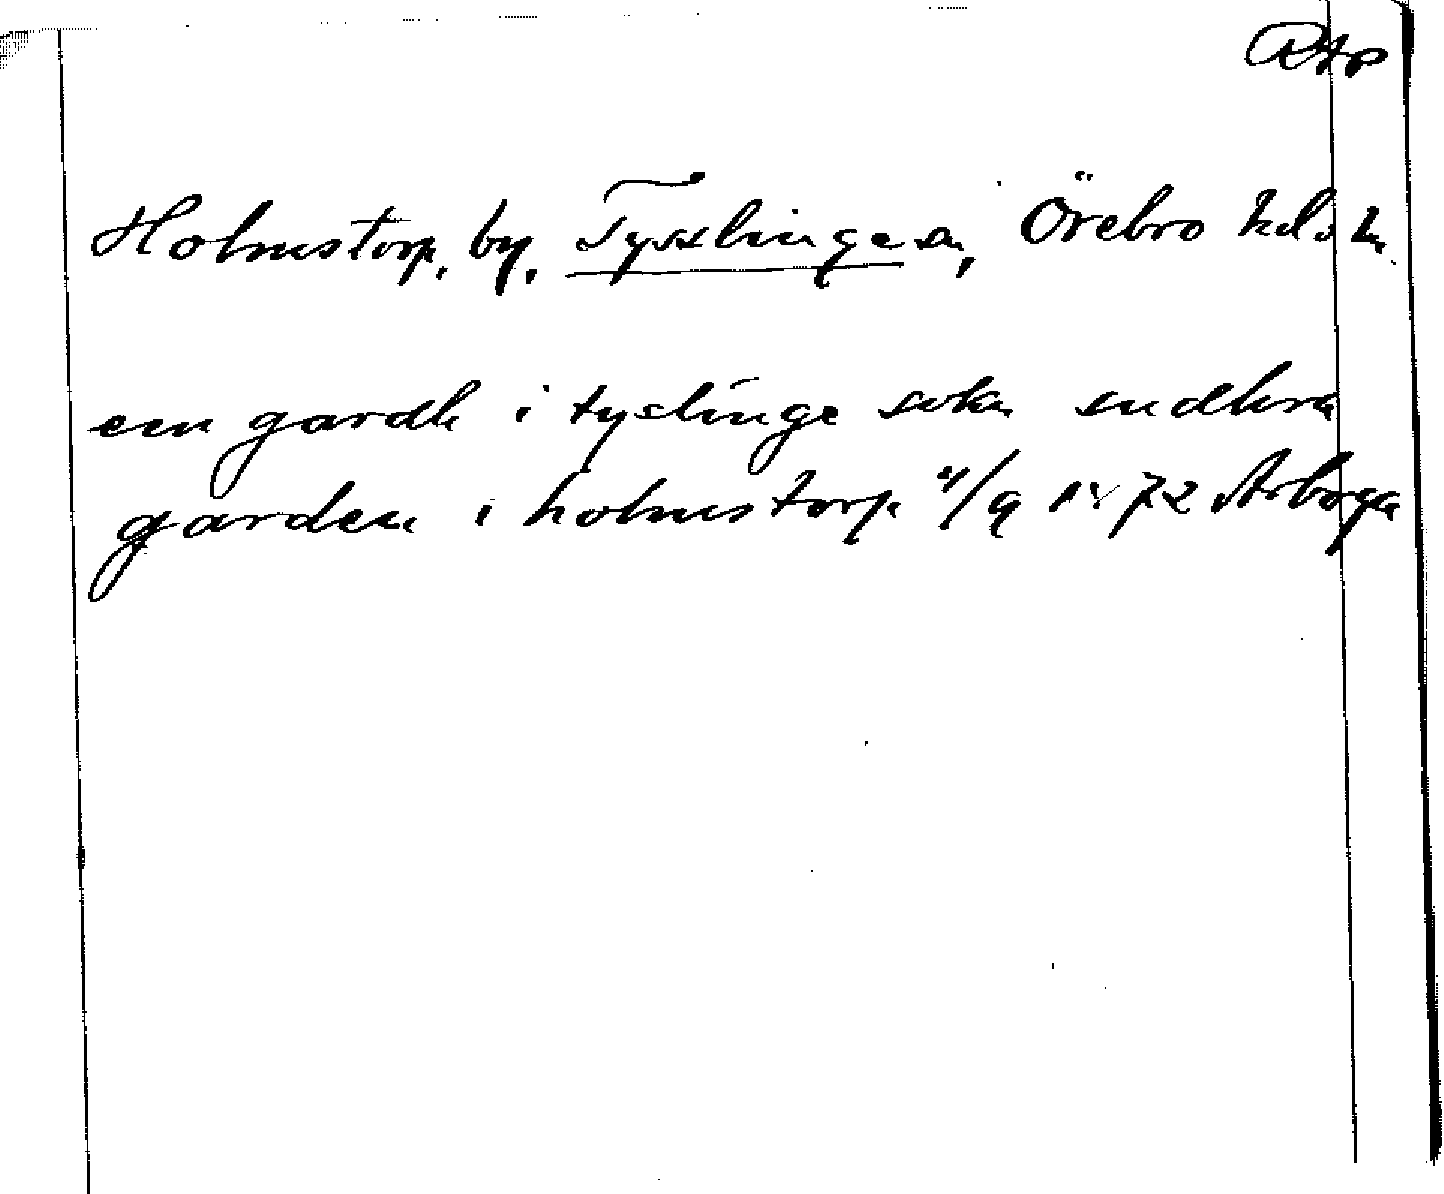 RAp
Holmstorp, by, Tysslinge sn, Örebro hd
een gardh i tyslinge sokn sudhra
garden i holmstorp 4/9 1472 Arboga